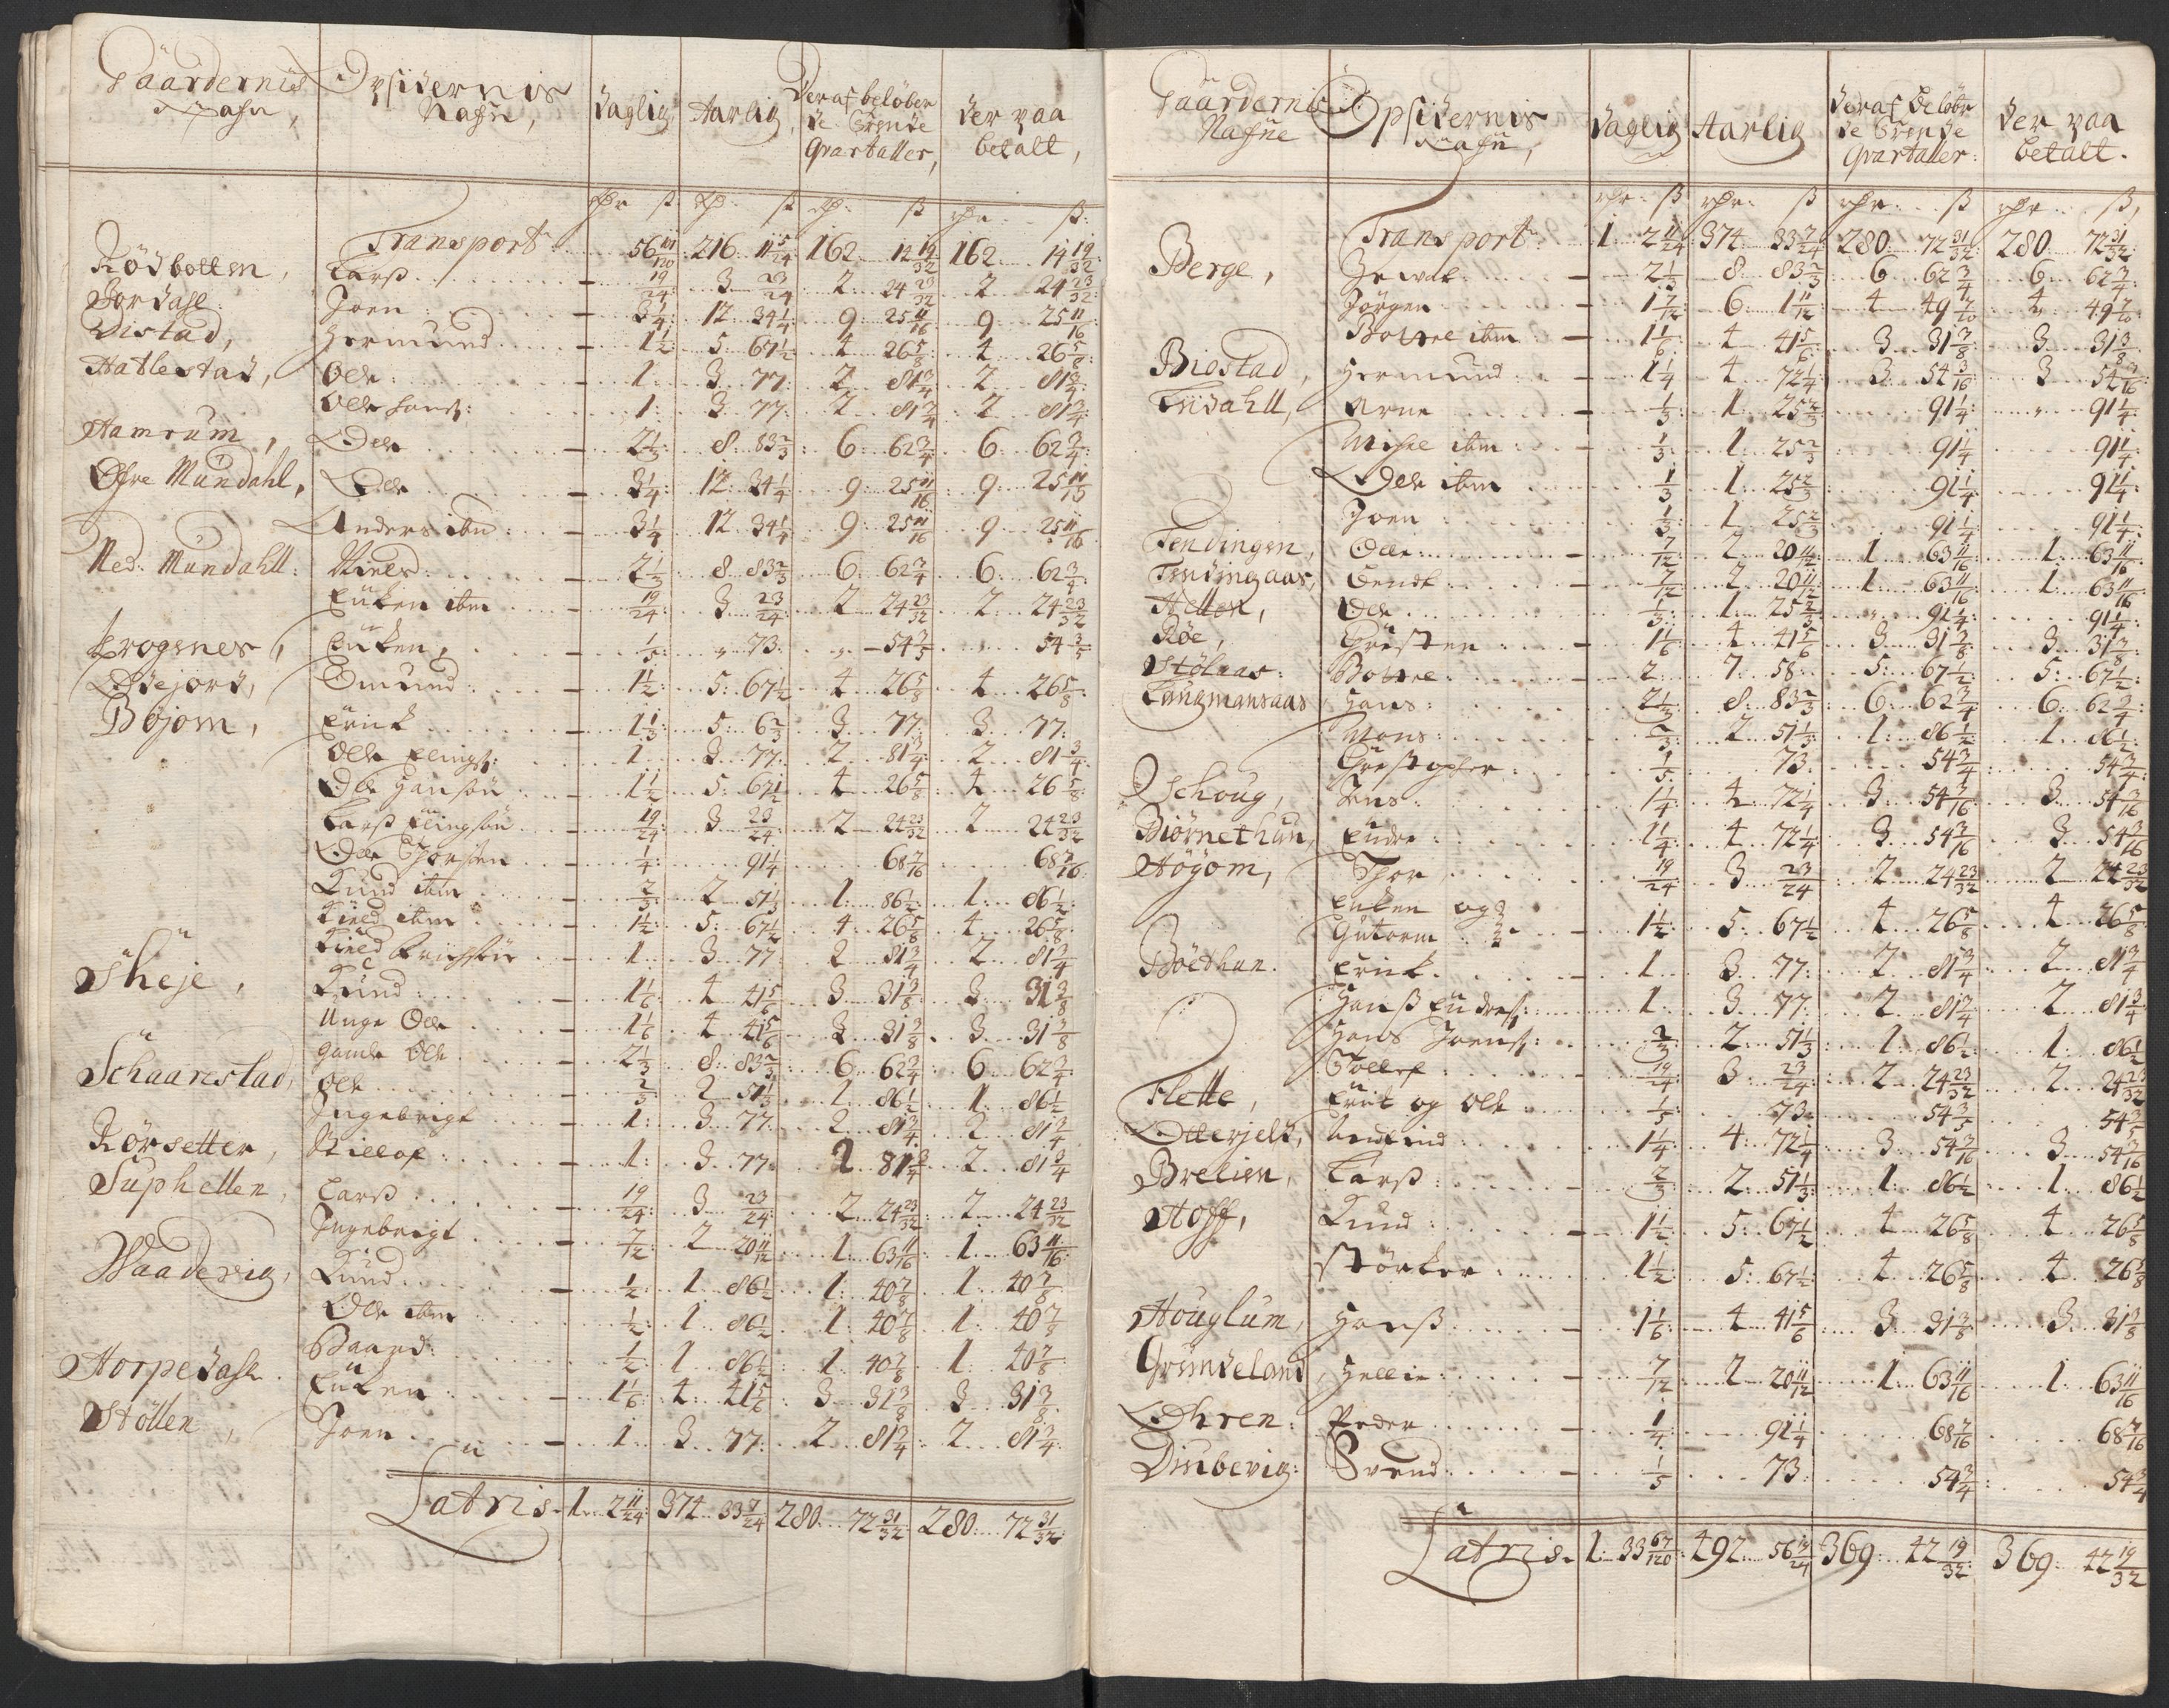 Gaardernis Nafn, Opsidernis Nafn, daglig, Aarlig, Deraf beløber de Trende Qvartaller, der paa betalt,
rdr ß rdr ß rdr ß rdr ß
Transport 56 111/120 216 11 5/24 162 12 19/32 162 14 19/32
Rödbotten, Larß 19/24 3 23/24 2 24 23/32 2 24 23/32
Jordahl Joen 3 1/4 12 34 1/4 9 25 11/16 9 25 11/16
Distad, Hermund 1 1/2 5 67 1/2 4 26 5/8 4 26 5/8
Hatlestad, Olle 1 3 77 2 81 3/4 2 81 3/4
Olle Hanß: 1 3 77 2 81 3/4 2 81 3/4
Hamrum, Olle 2 1/3 8 83 2/3 6 62 3/4 6 62 3/4
Öfre Mundahl, Olle 3 1/4 12 34 1/4 9 25 11/16 9 25 11/16
Anders ibm 3 1/4 12 34 1/4 9 25 11/16 9 25 11/16
Ned. Mundahll: Niels 2 1/3 8 83 2/3 6 62 3/4 6 62 3/4
Lücken ibm 19/24 3 23/24 2 24 23/32 2 24 23/32
Frognes, Lücken, 1/5 73 54 3/5 54 3/5
Odejord, Omund 1 1/2 5 67 1/2 4 26 5/8 4 26 5/8
Böjom, Erick 1 1/3 5 6 2/3 3 77 3 77
Olle Elingß: 1 3 77 2 81 3/4 2 81 3/4
Olle Hansön 1 1/2 5 67 1/2 4 26 5/8 4 26 5/8
Larß Elingsön 19/24 3 23/24 2 24 23/32 2 24 23/32
Olle Thorsten 1/4 91 1/4 68 7/16 68 7/16
Knud ibm 2/3 2 51 1/3 1 86 1/2 1 86 1/2
Kield ibm 1 1/2 5 67 1/2 4 26 5/8 4 26 5/8
Kield Erichsön 1 3 77 2 81 3/4 2 81 3/4
Skeje, Knud 1 1/6 4 41 5/6 3 31 3/8 3 31 3/8
Unge Olle 1 1/6 4 41 5/6 3 31 3/8 3 31 3/8
Gamle Olle 2 1/3 8 83 2/3 6 62 3/4 6 62 3/4
Schaarestad, Olle 2/3 2 51 1/3 1 86 1/2 1 86 1/2
Ingebrigt 1 3 77 2 81 3/4 2 81 3/4
Rörsetter, Stillof 1 3 77 2 81 3/4 2 81 3/4
Suphellen, Larß 19/24 3 23/24 2 24 23/32 2 24 23/32
Ingebrigt 7/12 2 20 11/12 1 63 11/16 1 63 11/16
Waadevig, Knud 1/2 1 86 1/2 1 40 7/8 1 40 7/8
Olle ibm 1/2 1 86 1/2 1 40 7/8 1 40 7/8
Baard 1/2 1 86 1/2 1 40 7/8 1 40 7/8
Horpedahl Lücken 1 1/6 4 41 5/6 3 31 3/8 3 31 3/8
Stöllen, Joen 1 3 77 2 81 3/4 2 81 3/4
Latris 1 2 11/24 374 33 7/24 280 72 31/32 280 72 31/32
Gaardernis Nafne Opsidernis Nafn, daglig Aarlig deraf Beløbr de Trende Qvartaller: der paa betalt.
rdr: ß rdr: ß rdr: ß rdr: ß
Transport 1 2 11/24 374 33 7/24 280 72 31/32 280 72 31/32
Berge, 2 1/3 8 83 2/3 6 62 3/4 6 62 3/4
Jörgen 1 7/12 6 1 11/12 4 49 7/16 4 49 7/16
ibm 1 1/6 4 41 5/6 3 31 3/8 3 31 3/8
Biostad, Hermund 1 1/4 4 72 1/4 3 54 3/16 3 54 3/16
Arne 1/3 1 25 2/3 91 1/4 91 1/4
Michel ibm 1/3 1 25 2/3 91 1/4 91 1/4
Olle ibm 1/3 1 25 2/3 91 1/4 91 1/4
Joen 1/3 1 25 2/3 91 1/4 91 1/4
Tendingen, Olle 7/12 2 20 11/12 1 63 11/16 1 63 11/16
Tendingaas, Bendt 7/12 2 20 11/12 1 63 11/16 1 63 11/16
Hellen, Olle 1/3 1 25 2/3 91 1/4 91 1/4
Röe, Christen 1 1/6 4 41 5/6 3 31 3/8 3 31 3/8
Stölaas: 2 7 58 5 67 1/2 5 67 1/2
Langmansaas Hans 2 1/3 8 83 2/3 6 62 3/4 6 62 3/4
Mons 2/3 2 51 1/3 1 86 1/2 1 86 1/2
Christopher 1/5 73 54 3/4 54 3/4
Schoug, Jens 1 1/4 4 72 1/4 3 54 3/16 3 54 3/16
Biörnethun, Endre 1 1/4 4 72 1/4 3 54 3/16 3 54 3/16
Högom, Thor 19/24 3 23/24 2 24 23/32 2 24 23/32
Lücken og
Guttorm 1 1/2 5 67 1/2 4 26 5/8 4 26 5/8
Böethun. Erick 1 3 77 2 81 3/4 2 81 3/4
Hanß Endreß: 1 3 77 2 81 3/4 2 81 3/4
Hans Joenß: 2/3 2 51 1/3 1 86 1/2 1 86 1/2
Tollef 19/24 3 23/24 2 24 23/32 2 24 23/32
Flette, Erick og Olle 1/5 73 54 3/5 54 3/5
Otterjeld, 1 1/4 4 72 1/4 3 54 3/16 3 54 3/16
Brelien, Larß 2/3 2 51 1/3 1 86 1/2 1 86 1/2
Hoff, Knud 1 1/2 5 67 1/2 4 26 5/8 4 26 5/8
Störcker 1 1/2 5 67 1/2 4 26 5/8 4 26 5/8
Houglum, Hanß 1 1/6 4 41 5/6 3 31 3/8 3 31 3/8
Grimdeland, Hellie 7/12 2 20 11/12 1 63 11/16 1 63 11/16
Ohren: Peder 1/4 91 1/4 68 7/16 68 7/16
Dinbevig: Svend 1/5 73 54 3/4 54 3/4
Latris 1 33 67/120 492 56 19/24 369 42 19/32 369 42 19/32